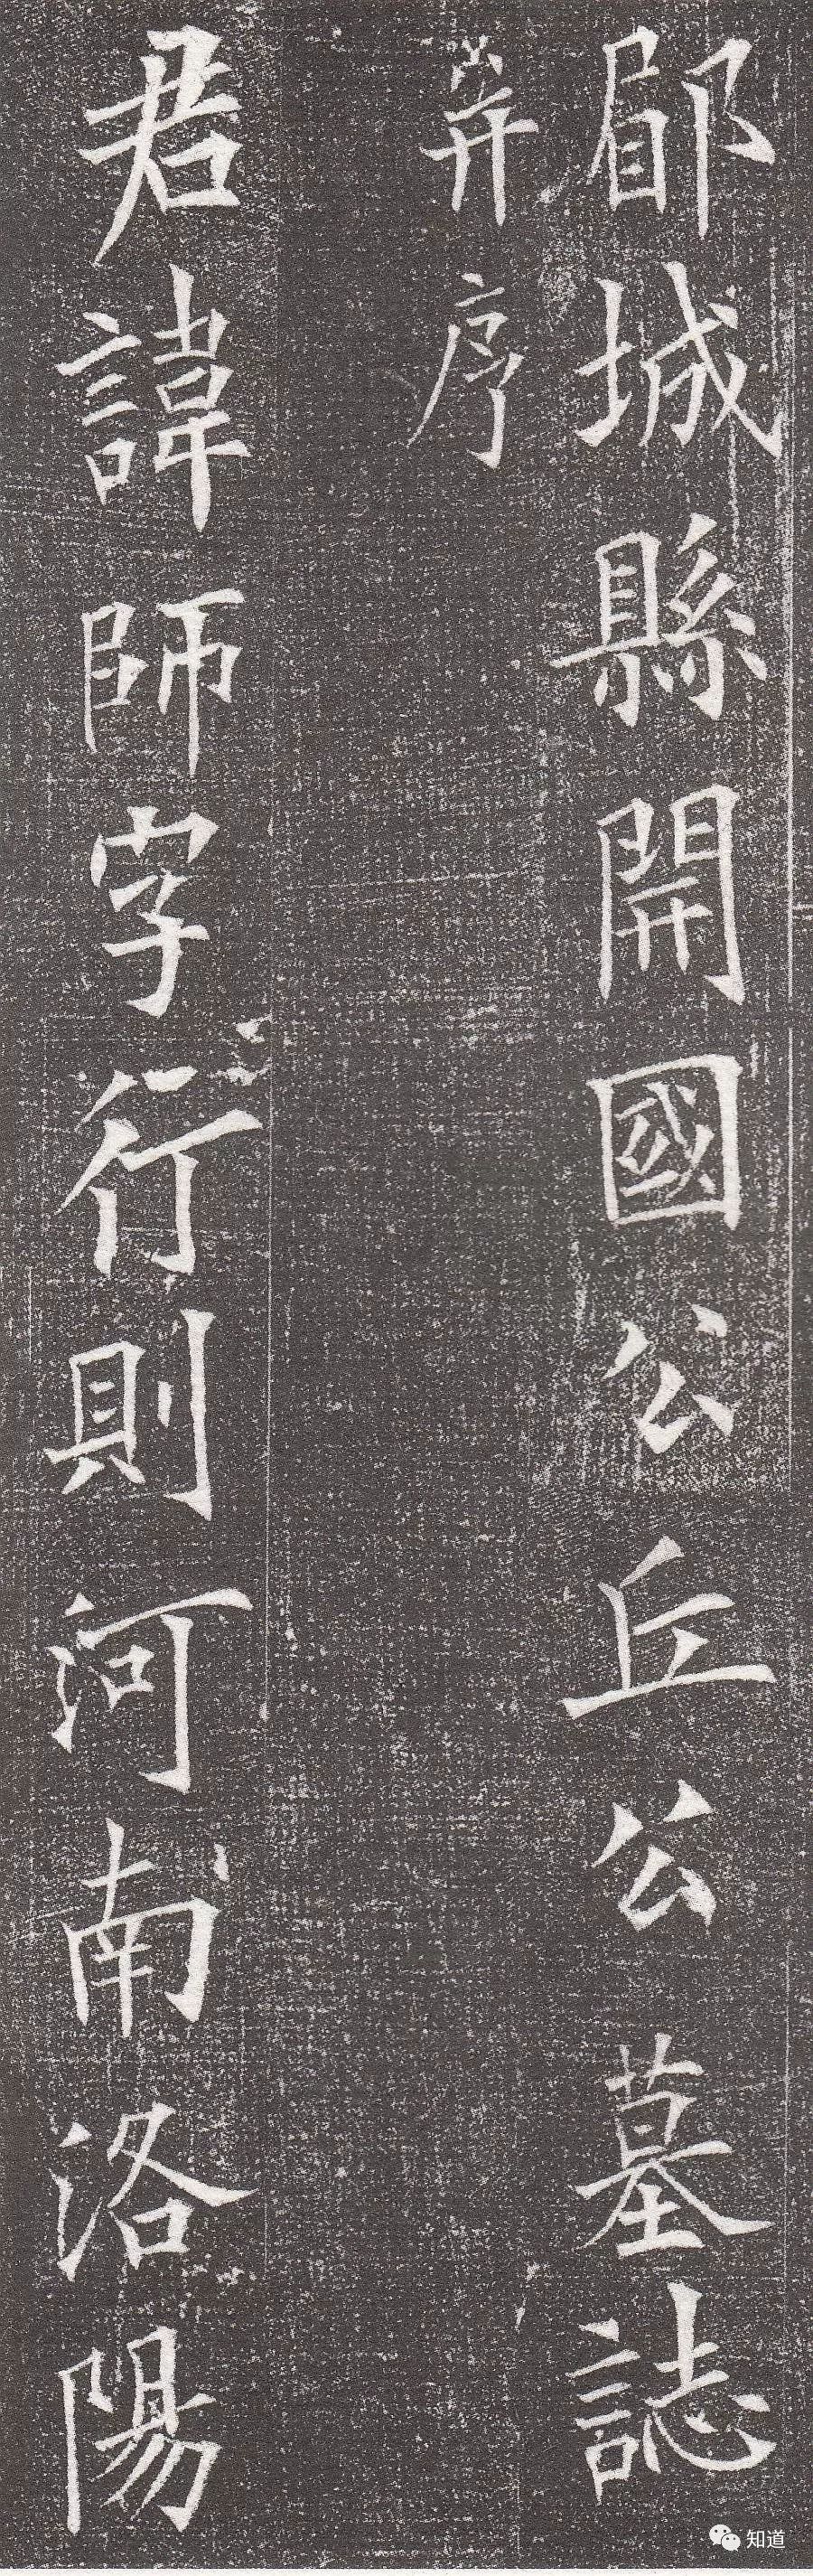 郿城縣開國公丘公墓誌
并序
君諱師字行則河南洛陽
知道